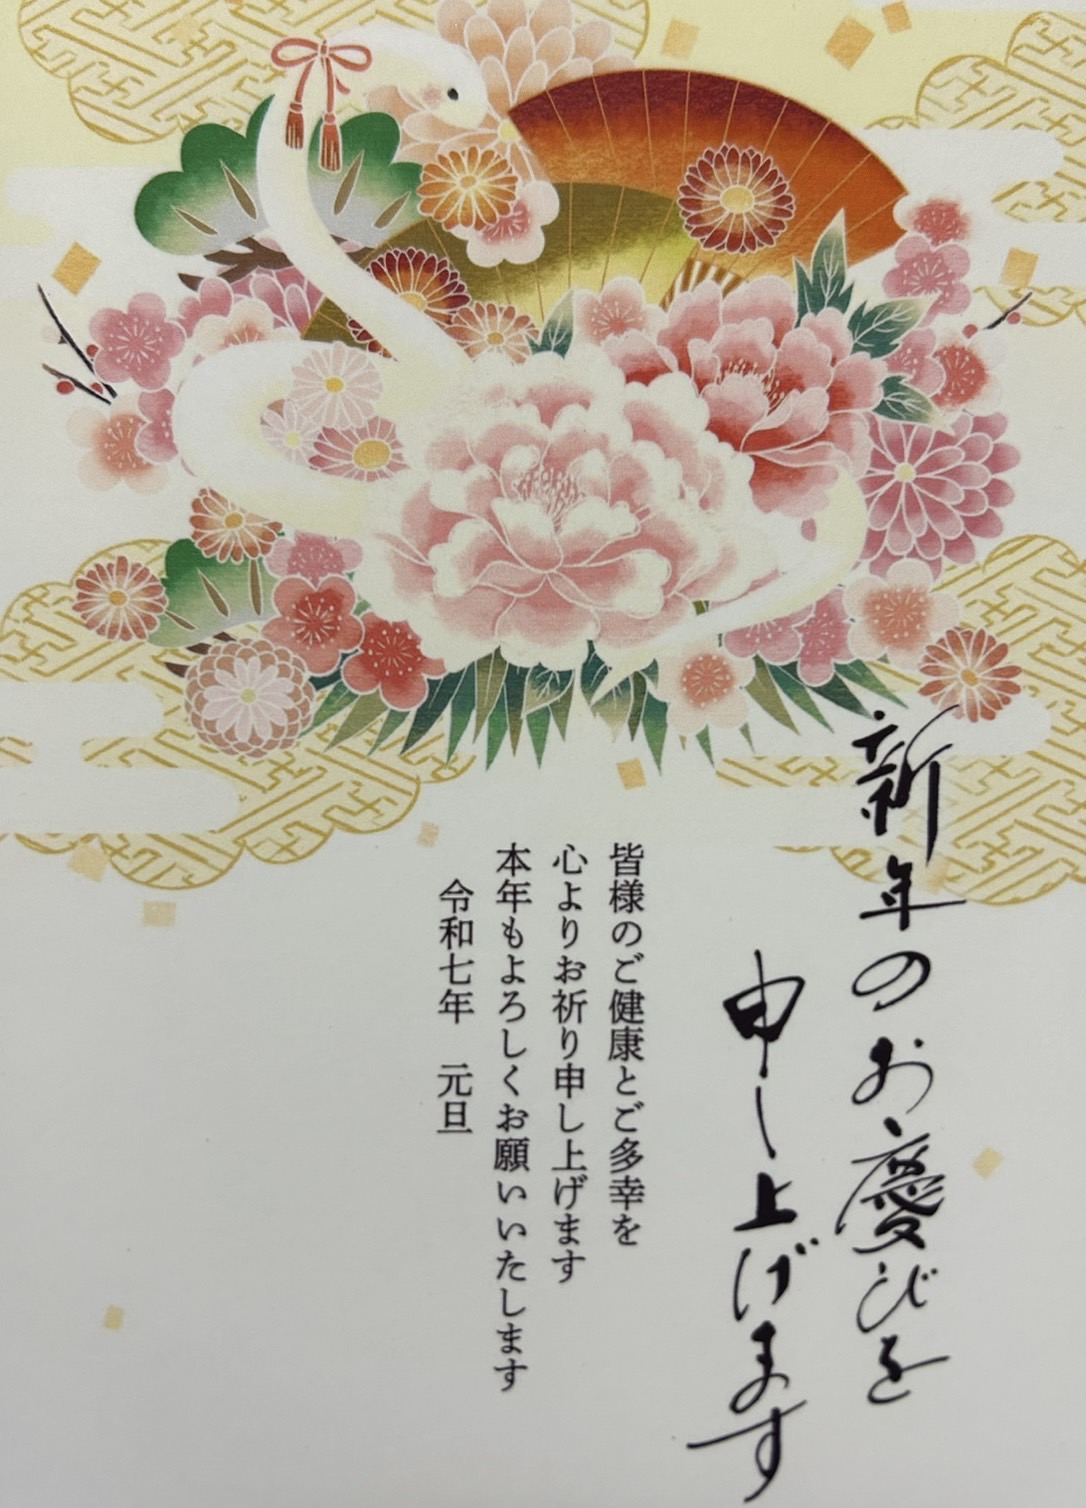 新年のお慶びを
申し上げます
皆様のご健康とご多幸を
心よりお祈り申し上げます
本年もよろしくお願いいたします
令和七年　元旦